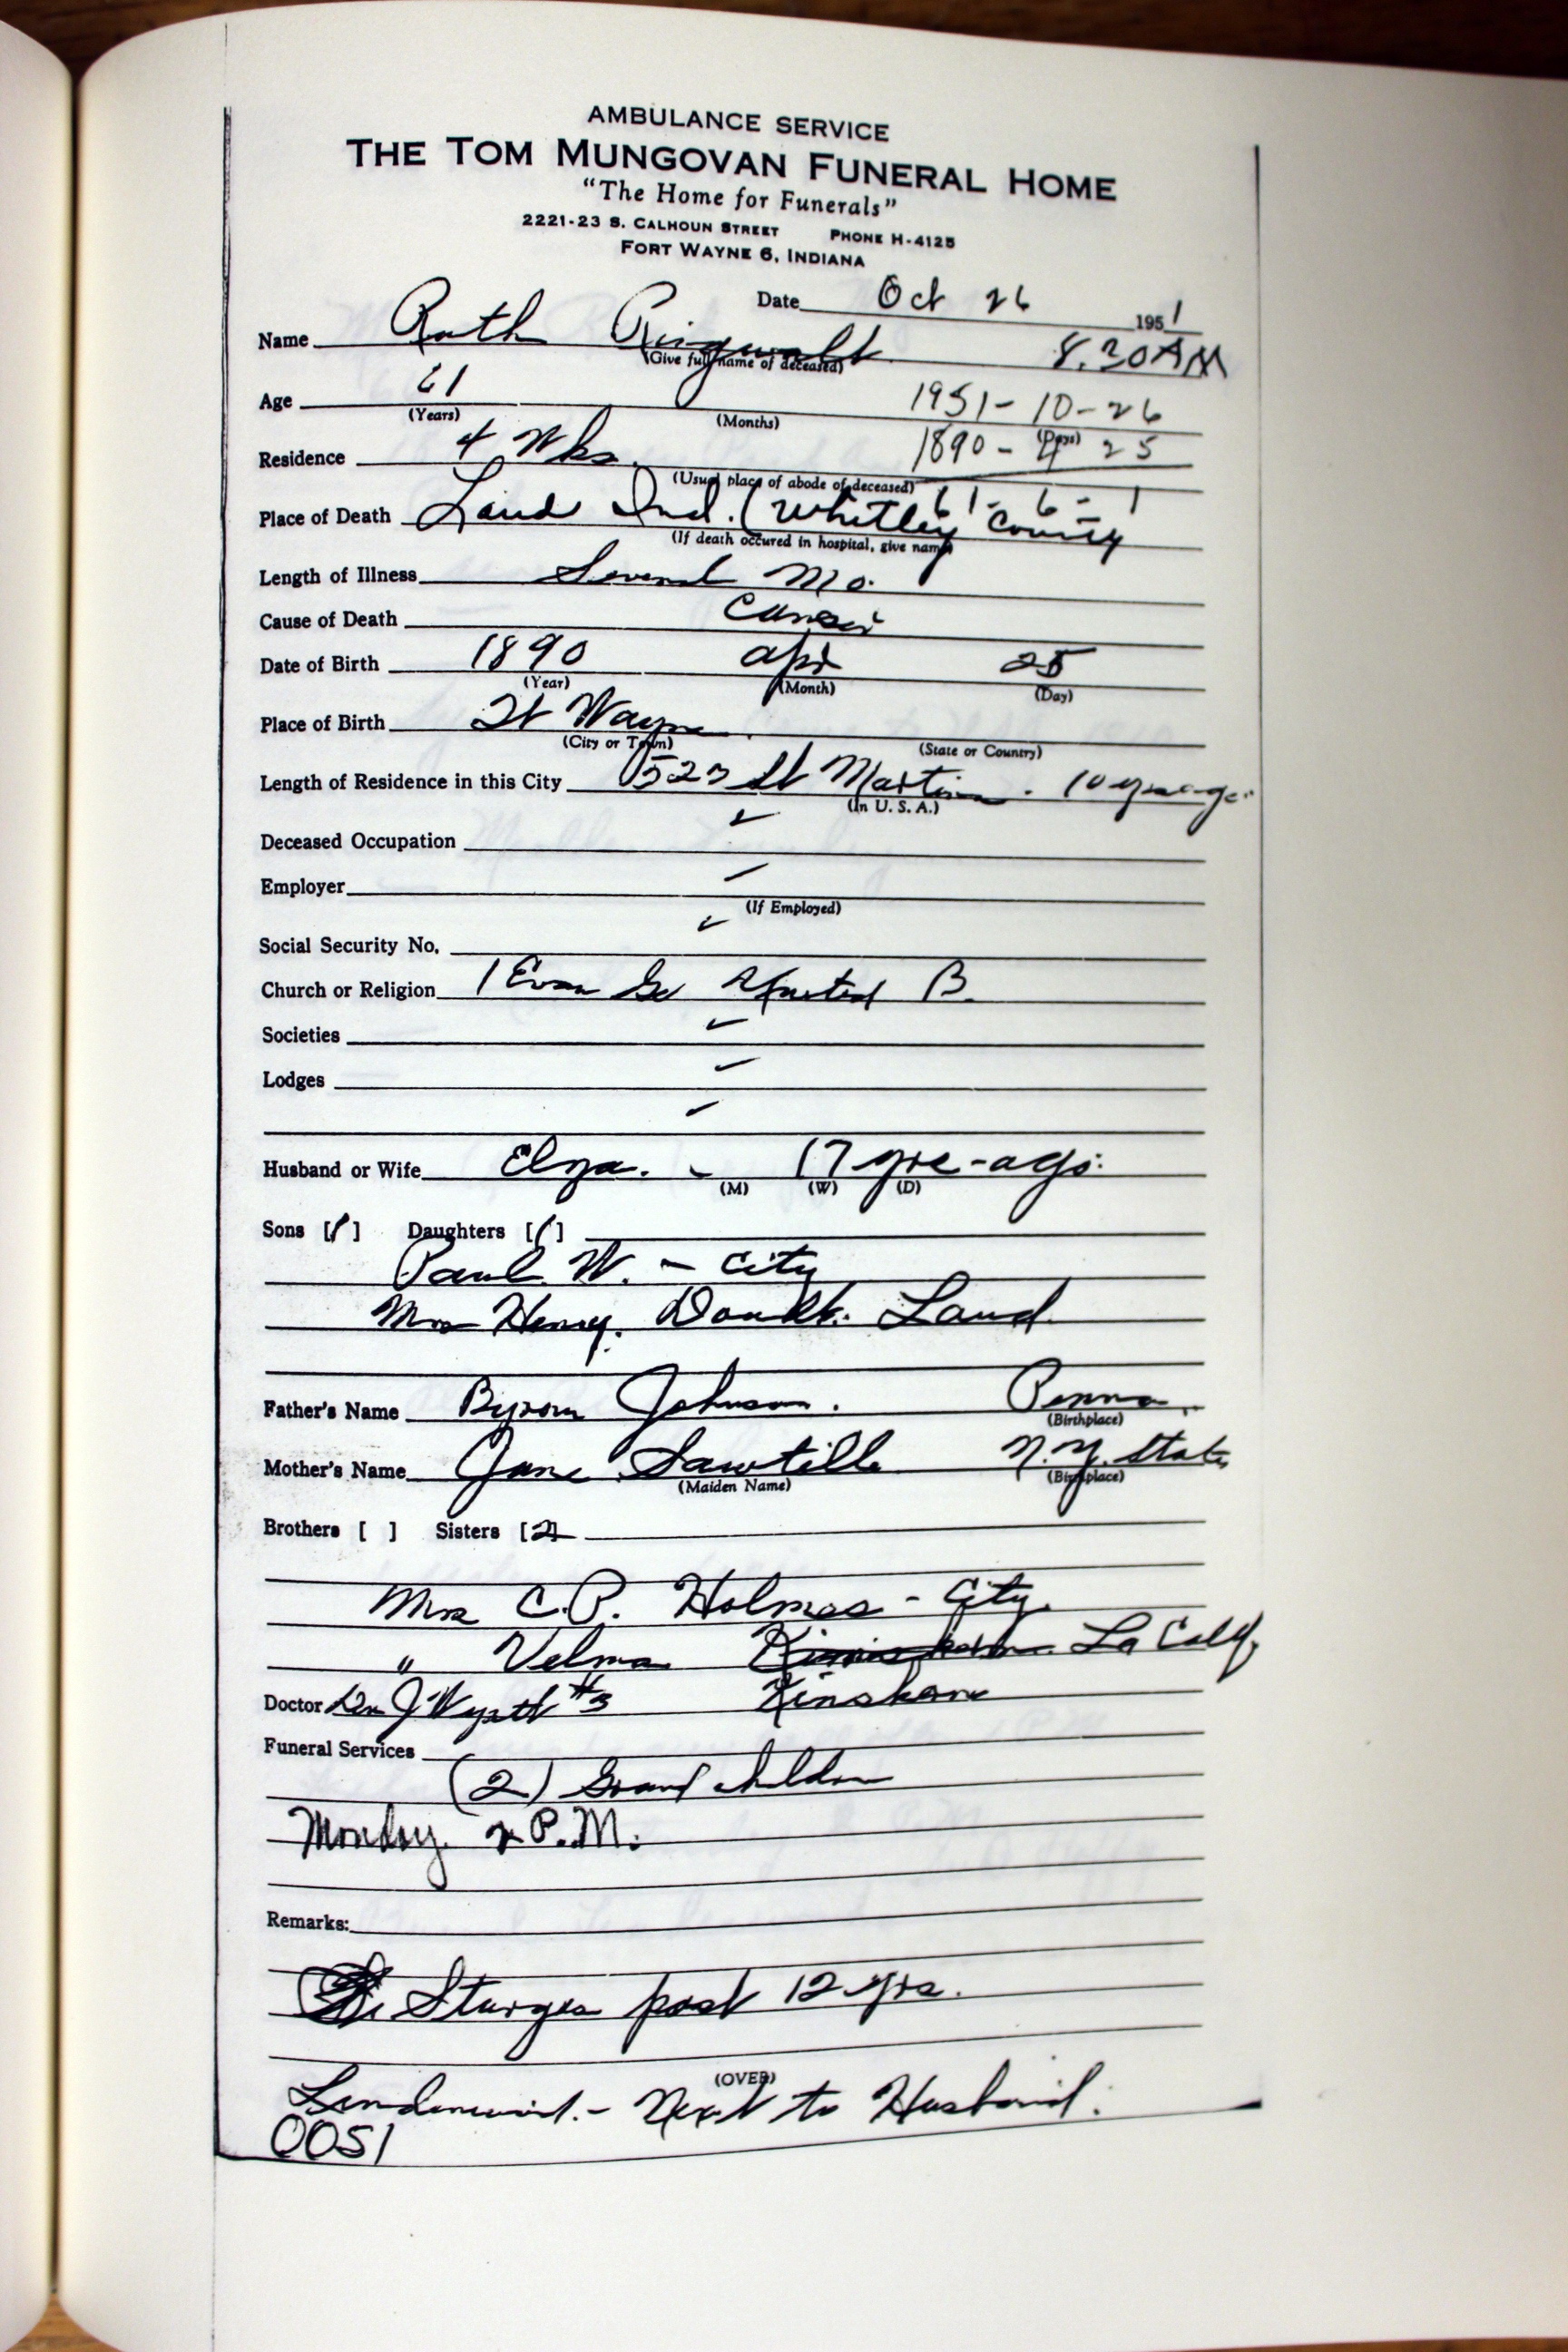 AMBULANCE SERVICE
THE TOM MUNGOVAN FUNERAL HOME
"The Home for Funerals"
2221-23 S. CALHOUN STREET PHONE H-4125
FORT WAYNE 6, INDIANA
Date Oct 26 1951
Name Ruth Ringwalt 8.30 AM
(Give full name of deceased)
Age 61 1951-10-26
(Years) (Months) (Days)
Residence 4 Wks. 1890-4 25
(Usual place of abode of deceased) 61-6-1
Place of Death Laud Ind. (Whitley County
(If death occured in hospital, give name)
Length of Illness Several Mo.
Cause of Death Cancer
Date of Birth 1890 Apr 25
(Year) (Month) (Day)
Place of Birth Ft Wayne
(City or Town) (State or Country)
Length of Residence in this City 523 St Martins. 10 yrs ago.
(In U. S. A.)
Deceased Occupation
Employer
(If Employed)
Social Security No.
Church or Religion 1 Evan United B.
Societies
Lodges
Husband or Wife Elza. - 17 yrs-ago.
(M) (W) (D)
Sons [1] Daughters [1]
Paul W. - City
Mrs Henry. Laud.
Father's Name Byron Johnson. Penna.
(Birthplace)
Mother's Name Jane Sawtille N.Y. State
(Maiden Name) (Birthplace)
Brothers [ ] Sisters [2]
Mrs C.P. Holmes - City.
" Velma La Calif,
Doctor J Wyatt #3 Kinskam
Funeral Services
(2) Grand children
Monday. 2 P.M.
Remarks:
Sturges past 12 yrs.
(OVER)
Lindenwood. - Next to Husband.
0051